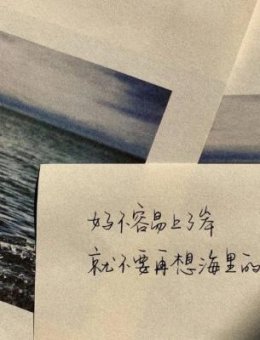 好不容易上了岸
就不要再想海里的